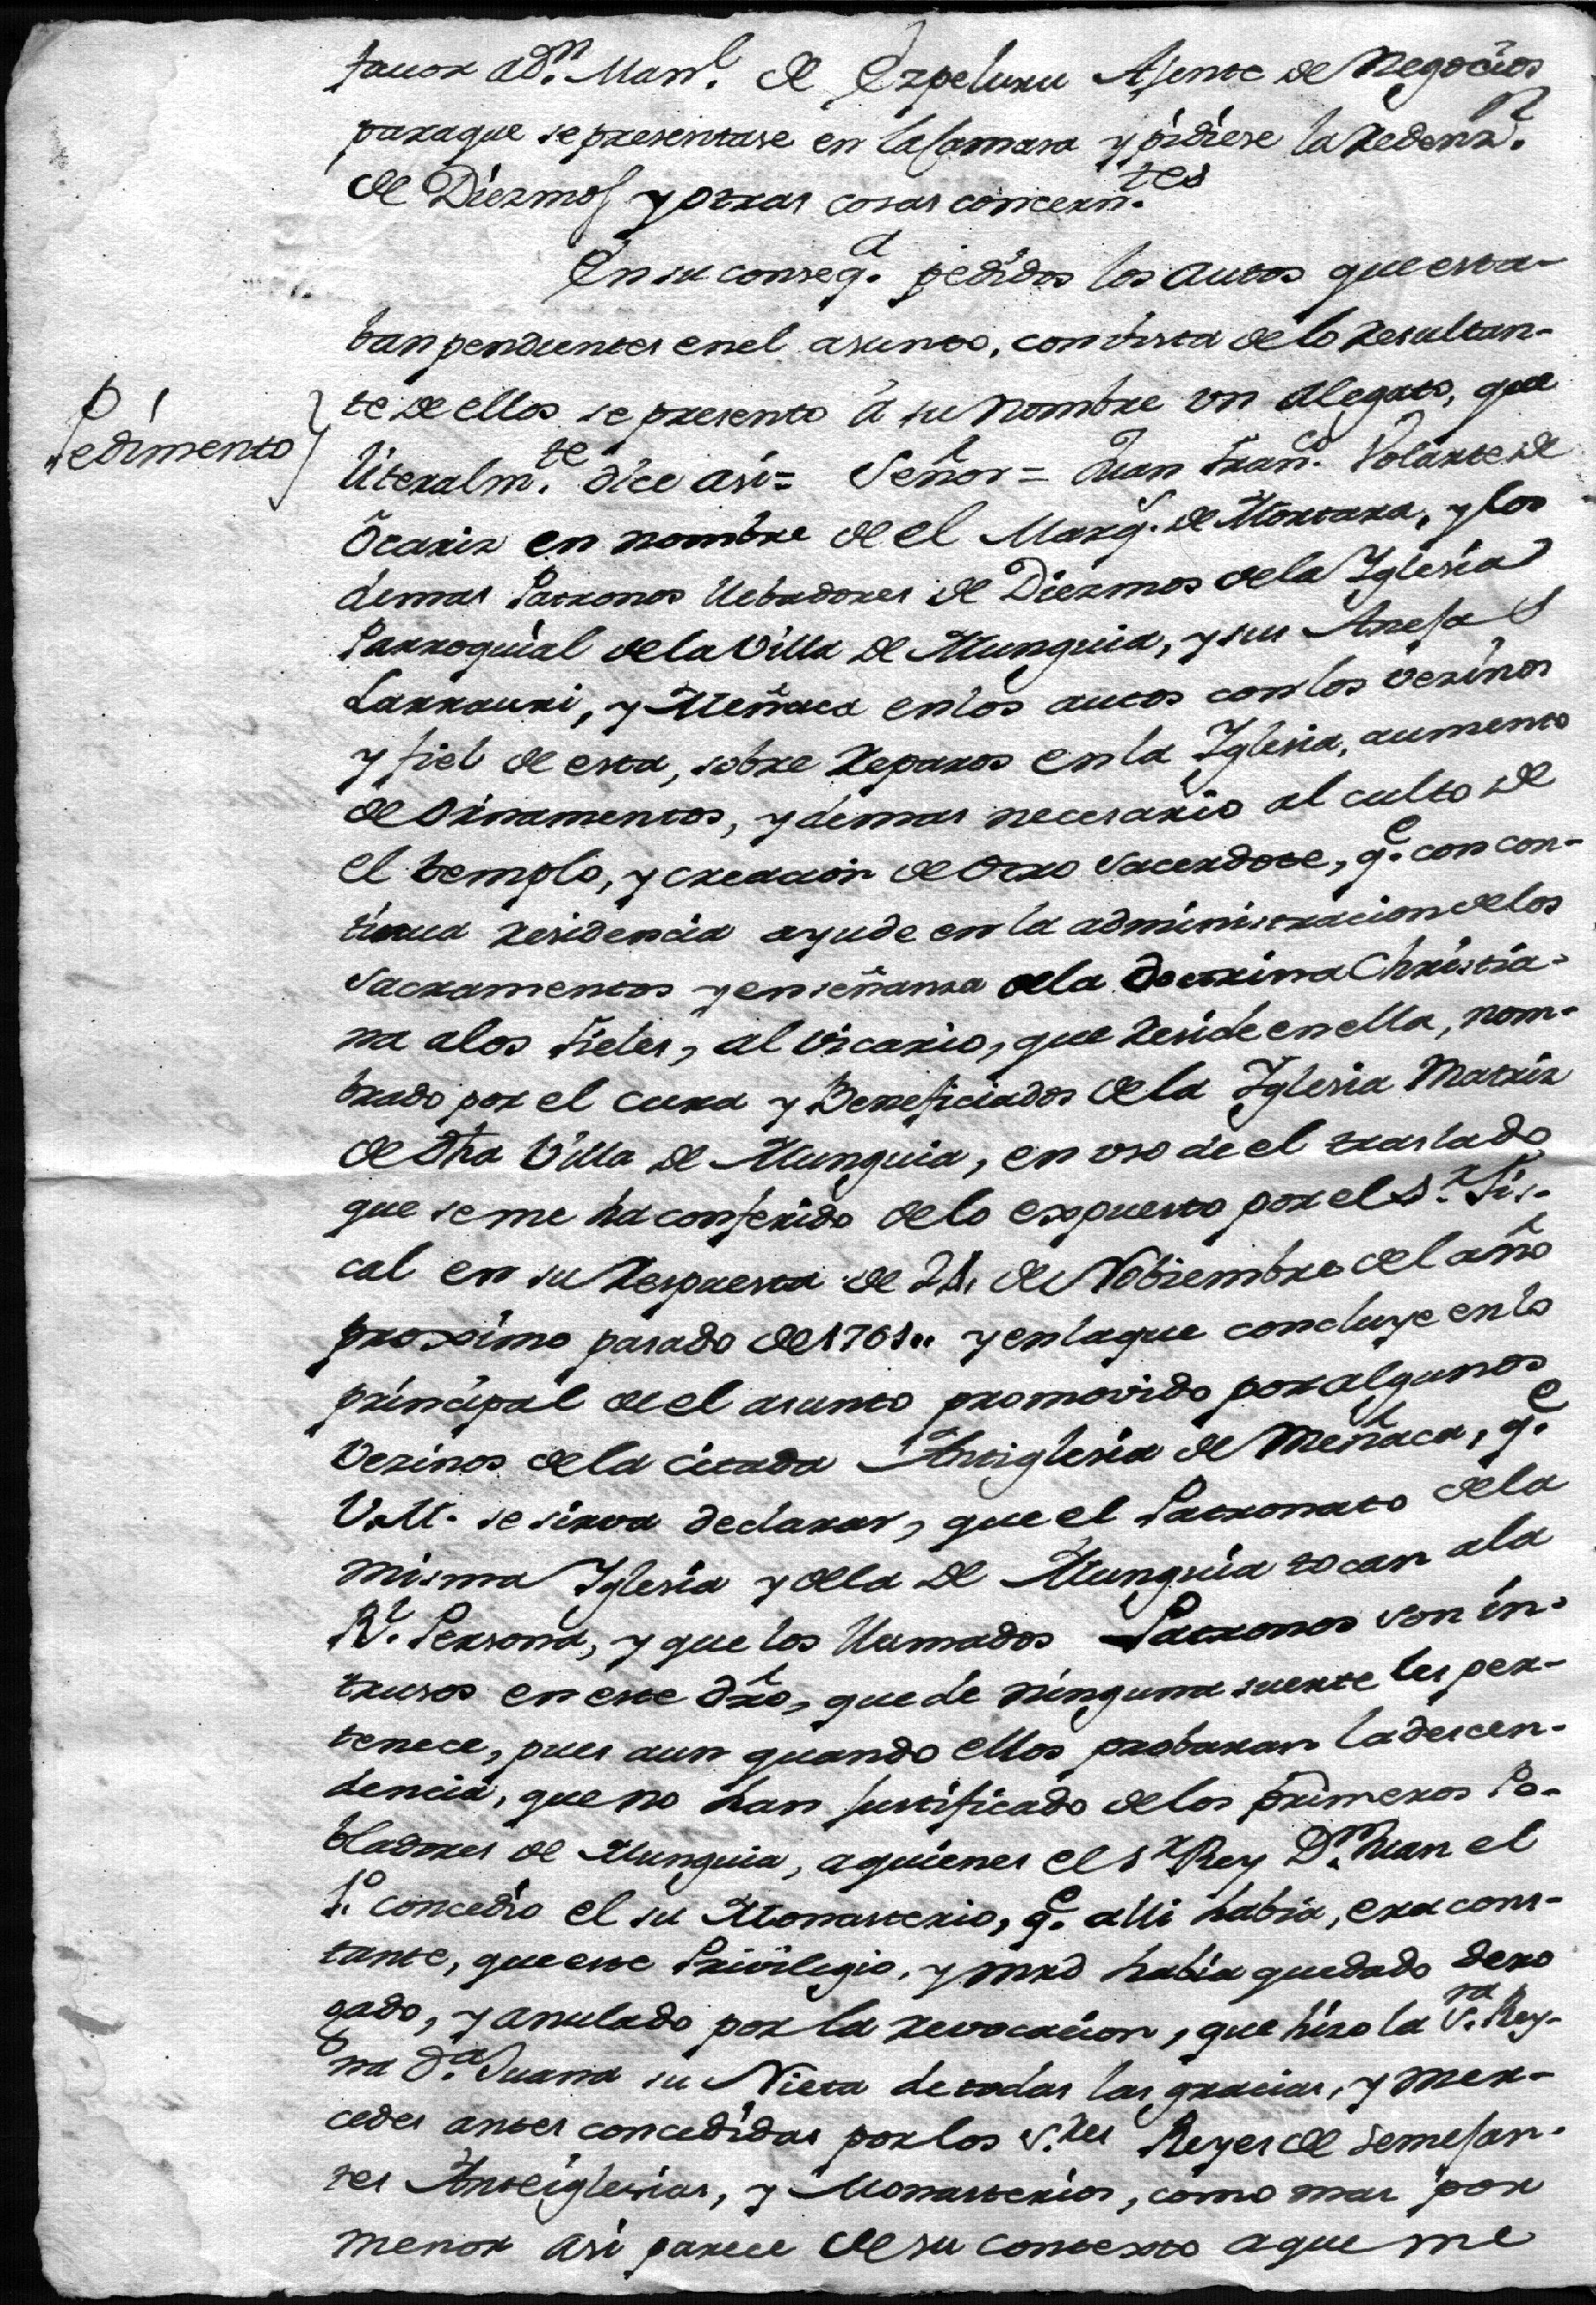 favor a Dn. Manl. de Ezpeluru Ajente de Negocios
paraque se presentase en la Camara y pidiese la Redenn.
de Diezmos y otras cosas concernтes.
En su conseqa. pedidos los autos que esta-
ban pendientes en el asunto, con vista de lo Resultan-
te de ellos se presento á su nombre un alegato, que
Pedimento
literalmte. dice asi = Señor = Juan Franco. Volarte de
Ocariz en nombre de el Marqs. de Mortara, y los
demas Patronos llebadores de Diezmos de la Iglesia
Parroquial de la Villa de Munguia, y sus Anejas
Larrauri, y Meñaca en los autos con los vezinos
y fiel de esta, sobre Reparos en la Iglesia, aumento
de Ornamentos, y demas necesario al culto de
el templo, y creacion de otro Sacerdote, qe. con con-
tinua residencia ayude en la administracion de los
Sacramentos y enseñanza de la Doctrina Christia-
na a los Fieles, al Vicario, que Reside en ella, nom-
brado por el cura y Beneficiados de la Iglesia Matriz
de dha Villa de Munguia, en uso de el traslado,
que se me ha conferido de lo expuesto por el Sr. Fis-
cal en su Respuesta de 21, de Nobiembre del año
proxsimo pasado de 1761,, y en la que concluye en lo
principal de el asunto promovido por algunos
Vezinos de la citada Anteiglesia de Meñaca, qe.
V.M. se sirva declarar, que el Patronato de la
misma Iglesia y de la de Munguia tocan a la
Rl. Persona, y que los llamados Patronos son in-
trusos en este dro, que de ninguna suerte les per-
tenece, pues aun quando ellos probaran la descen-
dencia, que no han justificado de los primeros Po-
bladores de Munguia, aquienes el Sr. Rey Dn. Juan el
1o. concedio el su Monasterio, qe. alli habia, era cons-
tante, que este Privilegio, y mrd habia quedado dero
gado, y anulado por la revocacion, que hizo la Sra. Rey-
na Da. Juana su Nieta de todas las gracias, y mer-
cedes antes concedidas por los Sres. Reyes de semejan-
tes Anteiglesias, y Monasterios, como mas por
menor asi parece de su contexto a que me